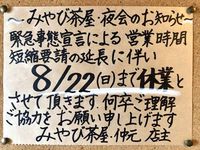 ～みやび茶屋 夜会のお知らせ～
緊急事態宣言による営業時間
短縮要請の延長に伴い
8/22(日)まで休業と
させて頂きます 何卒ご理解
ご協力をお願い申し上げます
みやび茶屋・仲元 店主